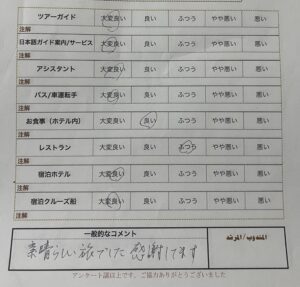 ツアーガイド 大変良い 良い ふつう やや悪い 悪い
注解
日本語ガイド案内/サービス 大変良い 良い ふつう やや悪い 悪い
注解
アシスタント 大変良い 良い ふつう やや悪い 悪い
注解
バス/車運転手 大変良い 良い ふつう やや悪い 悪い
注解
お食事(ホテル内) 大変良い 良い ふつう やや悪い 悪い
注解
レストラン 大変良い 良い ふつう やや悪い 悪い
注解
宿泊ホテル 大変良い 良い ふつう やや悪い 悪い
注解
宿泊クルーズ船 大変良い 良い ふつう やや悪い 悪い
注解
一般的なコメント المندوب/المرشد
素晴らしい旅でした 感謝してます
アンケート誠以上です。ご協力ありがとうございました